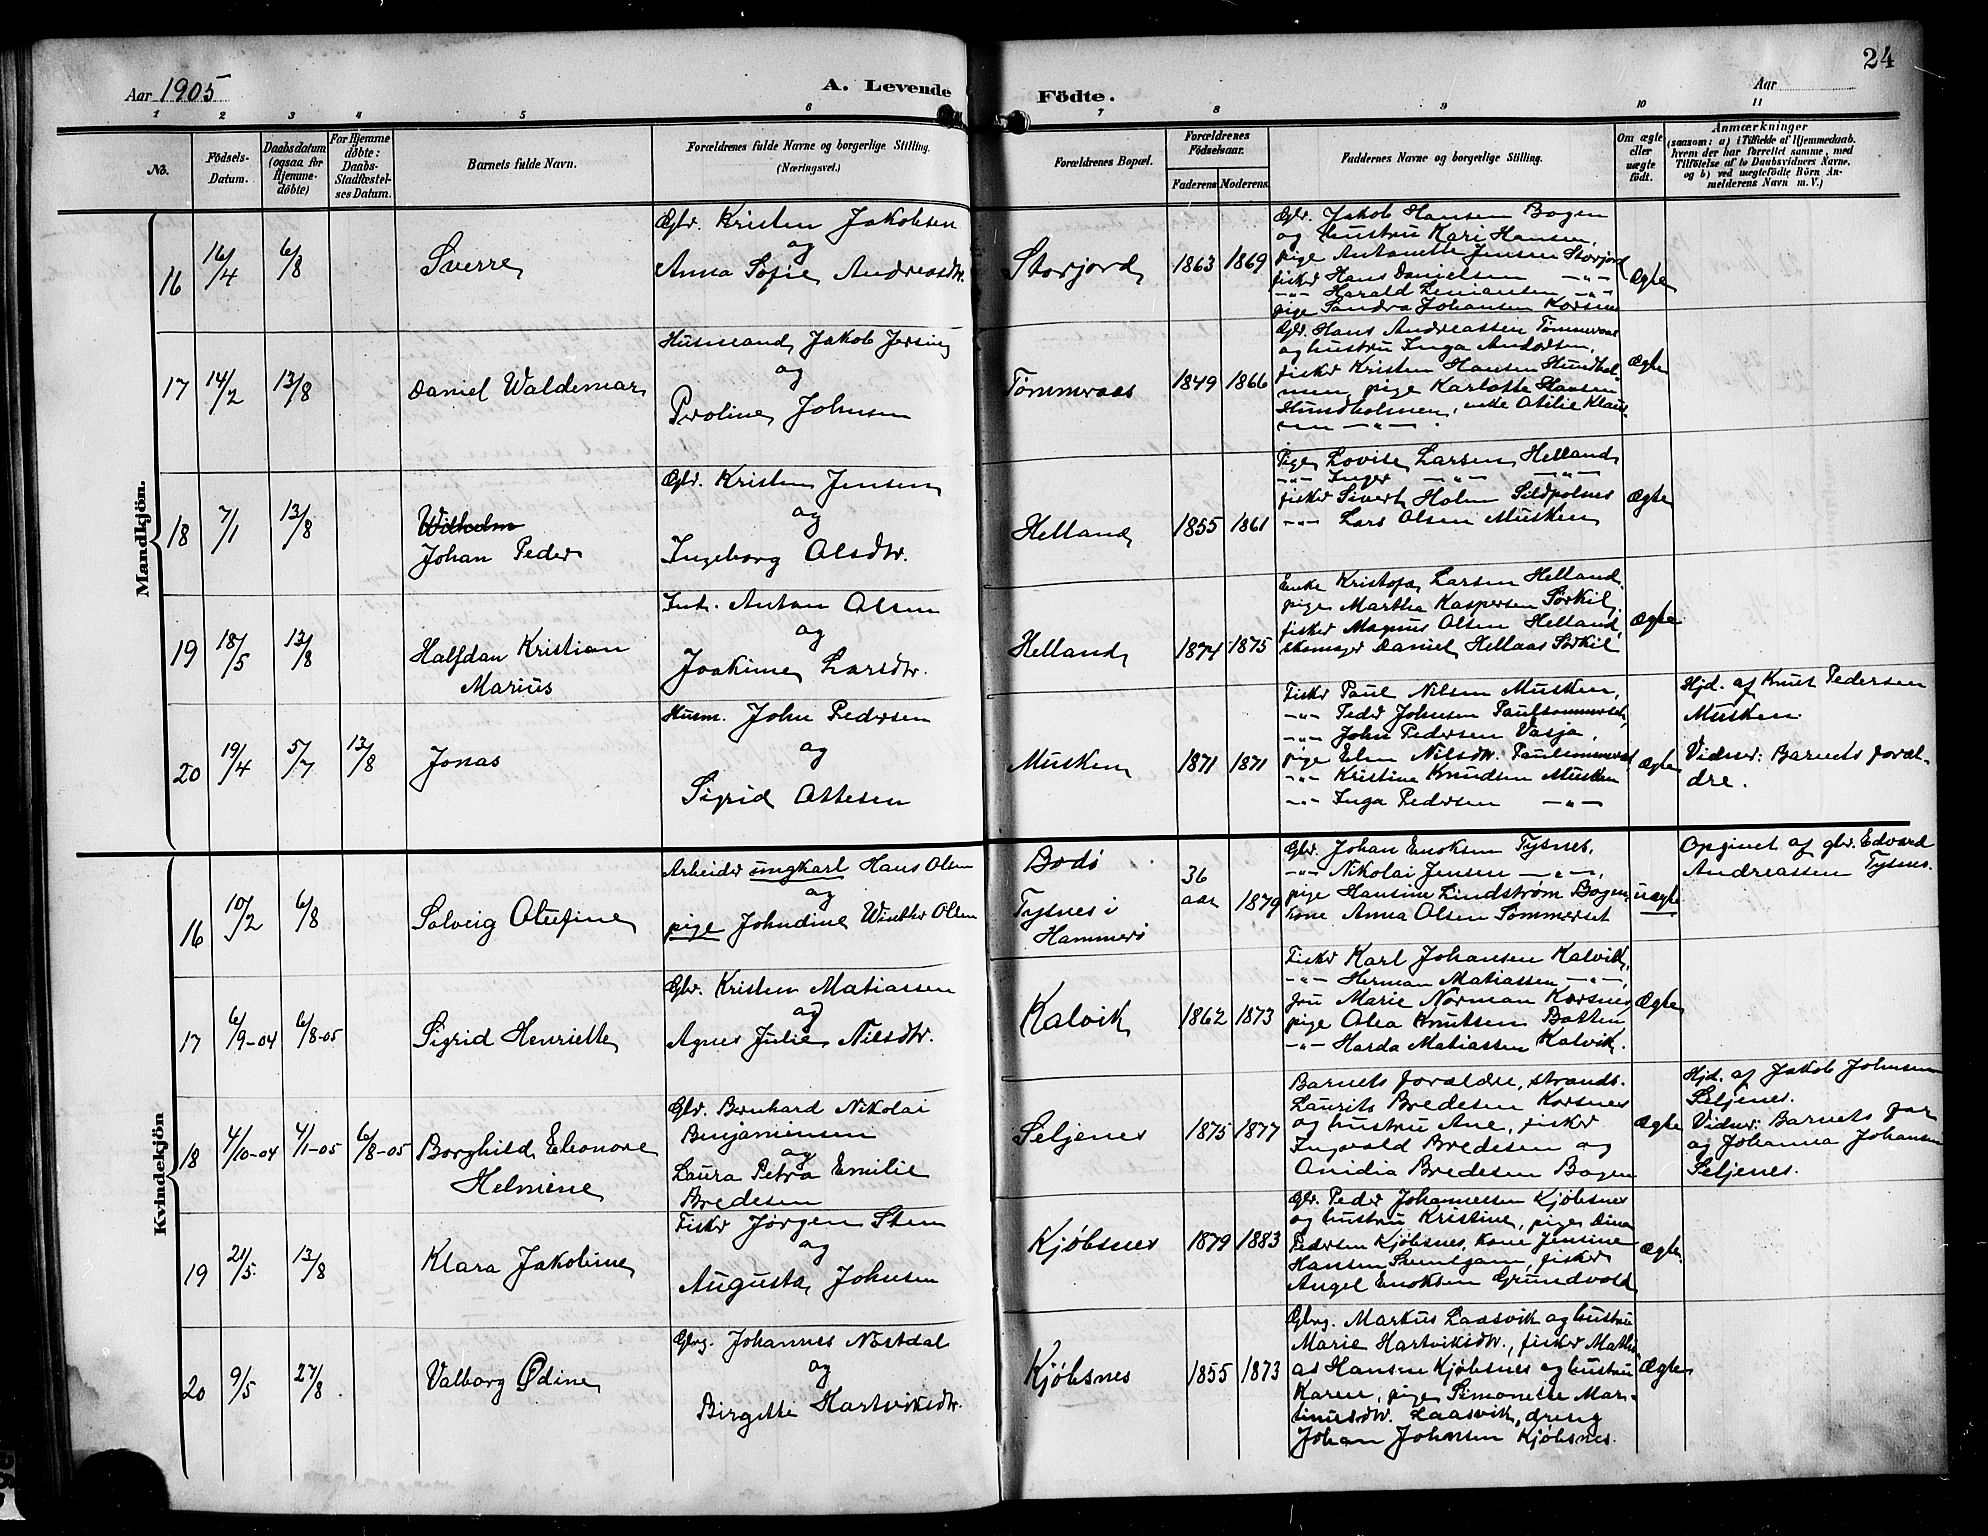 24
Aar 1905
A. Levende Födte.
Aar
1 2 3 4 5 6 7 8 9 10 11
No.
Födsels-Datum.
Daabsdatum (ogsaa för Hjemmedöbte)
For Hjemmedöbte: Daabs-Stadfæstelses Datum.
Barnets fulde Navn.
Forældrenes fulde Navne og borgerlige Stilling. (Næringsvei.)
Forældrenes Bopæl.
Forældrenes Födselsaar.
Faderens Moderens
Faddernes Navne og borgerlige Stilling.
Om ægte eller uægte födt.
Anmærkninger
(saasom: a) i Tilfælde af Hjemmedaab, hvem der har forrettet samme, med Tilföielse af to Daabsvidners Navne, og b) ved uægtefödte Börn Anmelderens Navn m. V.)
Mandkjön.
16 16/4 6/8 Sverre
Gbr. Kristen Jakobsen
og
Anna Sofie Andreasdtr.
Storjord 1863 1869
Gbr. Jakob Hansen Bogen
og hustru Kari Hansen,
pige Antonette Jensen Storjord
fisker Hans Danielsen -"-
-"- Harald -"-
pige Sandra Johansen Korsnes
Ægte
17 14/2 13/8 Daniel Waldemar
Husmand Jakob
og
Peroline Johnsen
Tømmeraas 1849 1866
Gbr. Hans Andreassen Tømmeraas
og hustru Inga Andersen,
fisker Kristen Hansen Hundhol-
men, pige Karlotte Hansen
Hundholmen, enke Otilie Klaus-
sen -"-.
Ægte
18 7/1 13/8 Wilhelm
Johan Peder
Gbr. Kristen Jensen
og
Ingeborg Olsdtr.
Helland 1855 1861
Pige Lovise Larsen Helland
-"- Inger -"- -"-
fisker Sivert Holm Sildpolnes
-"- Lars Olsen Musken
Ægte
19 18/5 13/8 Halfdan Kristian
Marius
Ind. Anton Olsen
og
Joakime Larsdtr.
Helland 1874 1875
Enke Kristofa Larsen Helland,
pige Martha Kaspersen Sørkil,
fisker Magnus Olsen Helland,
skomager Daniel Hellaas Sørkil
Ægte
20 19/4 5/7 13/8 Jonas
Husm. John Pedersen
og
Sigrid Ottesen
Musken 1871 1871
Fisker Paul Nilsen Musken,
-"- Peder Johnsen Paulsommerset,
-"- John Pedersen Vasja,
pige Elen Nilsdtr. Paulsommerset,
-"- Kristine Knudsen Musken
-"- Inga Pedersen -"-
Ægte
Hjd. af Knut Pedersen
Musken.
Vidner: Barnets foræl-
dre.
Kvindekjön
16 10/2 6/8 Solveig Olufine
Arbeider ungkarl Hans Olsen
og
pige Johndine Winther Olsen
Bodö
Tysnes i
Hammerö
36
aar 1879
Gbr. Johan Enoksen Tysnes,
-"- Nikolai Jensen -"-,
pige Hansine Lindstrøm Bogen,
kone Anna Olsen Sommerset
uægte
Opgivet af gbr. Edvard
Andreassen Tysnes.
17 6/9-04 6/8-05 Sigrid Henriette
Gbr. Kristen Matiassen
og
Agnes Julie Nilsdtr.
Kalvik 1862 1873
Fisker Karl Johansen Kalvik,
-"- Herman Matiassen -"-,
fru Marie Norman Korsnes,
pige Olea Knutsen Botten
-"- Harda Matiassen Kalvik.
Ægte
18 4/10-04 4/1-05 6/8-05 Borghild Eleonore
Helmine
Gbr. Bernhard Nikolai
Benjaminsen
og
Laura Petra Emilie
Bredesen
Seljenes 1875 1877
Barnets forældre, strands.
Laurits Bredesen Korsnes
og hustru Ane, fisker
Ingvald Bredesen og
Anidia Bredesen Bogen
Ægte
Hjd. af Jakob Johnsen
Seljenes.
Vidner: Barnets far
og Johanna Johansen
Seljenes.
19 21/5 13/8 Klara Jakobine
Fisker Jørgen Sten
og
Augusta Johnsen
Kjøbsnes 1879 1883
Gbr. Peder Johannessen Kjøbsnes
og hustru Kristine, pige Dina
Pedersen Kjøbsnes, kone Jensine
Hansen, fisker
Angel Enoksen Grundvold
Ægte.
20 9/5 27/8 Valborg Ødine
Gbrg. Johannes Nordal
og
Birgitte Hartviksdtr.
Kjøbsnes 1855 1873
Gbrg. Markus Laasvik og hustru
Marie Hartviksdtr., fisker Mathi-
as Hansen Kjøbsnes og hustru
Karen, pige Simonette Mar-
tinusdtr. Laasvik, dreng
Johan Johnsen Kjøbsnes.
Ægte